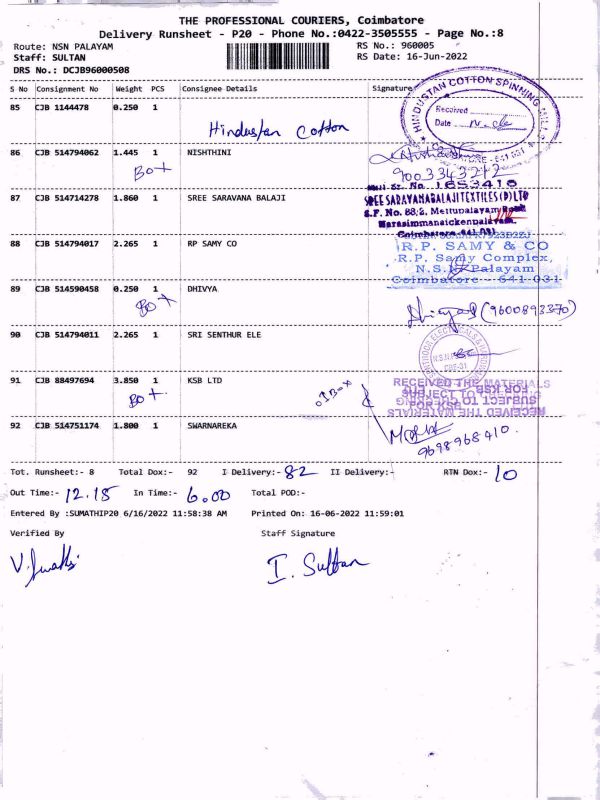 THE PROFESSIONAL COURIERS, Coimbatore
Delivery Runsheet - P20 - Phone No.:0422-3505555 - Page No.:8
Route: NSN PALAYAM
RS No.: 960005
Staff: SULTAN
RS Date: 16-Jun-2022
DRS No.: DCJB96000508
S No Consignment No Weight PCS Consignee Details Signature
85 CJB 1144478 0.250 1
Hindustan Cotton
HINDUSTAN COTTON SPINNING MILLS
Received
Date
86 CJB 514794062 1.445 1 NISHTHINI
BOX
9003343212
87 CJB 514714278 1.860 1 SREE SARAVANA BALAJI
SREE SARAVANABALAJI TEXTILES (P) LTD
S.F. No. 88/2, Mettupalayam Road
Narasimmanaickenpalayam,
Coimbatore-641 031
88 CJB 514794017 2.265 1 RP SAMY CO
R.P. SAMY & CO
R.P. Samy Complex,
N.S.N Palayam
Coimbatore - 641 031
89 CJB 514590458 0.250 1 DHIVYA
BOX
(9600893370)
90 CJB 514794011 2.265 1 SRI SENTHUR ELE
91 CJB 88497694 3.850 1 KSB LTD
BOX
RECEIVED THE MATERIALS
SUBJECT TO CHECKING
FOR KSB
92 CJB 514751174 1.800 1 SWARNAREKA
9698968410
Tot. Runsheet:- 8 Total Dox:- 92 I Delivery:- 82 II Delivery:- RTN Dox:- 10
Out Time:- 12.15 In Time:- 6.00 Total POD:-
Entered By :SUMATHIP20 6/16/2022 11:58:38 AM Printed On: 16-06-2022 11:59:01
Verified By Staff Signature
I. Sultan